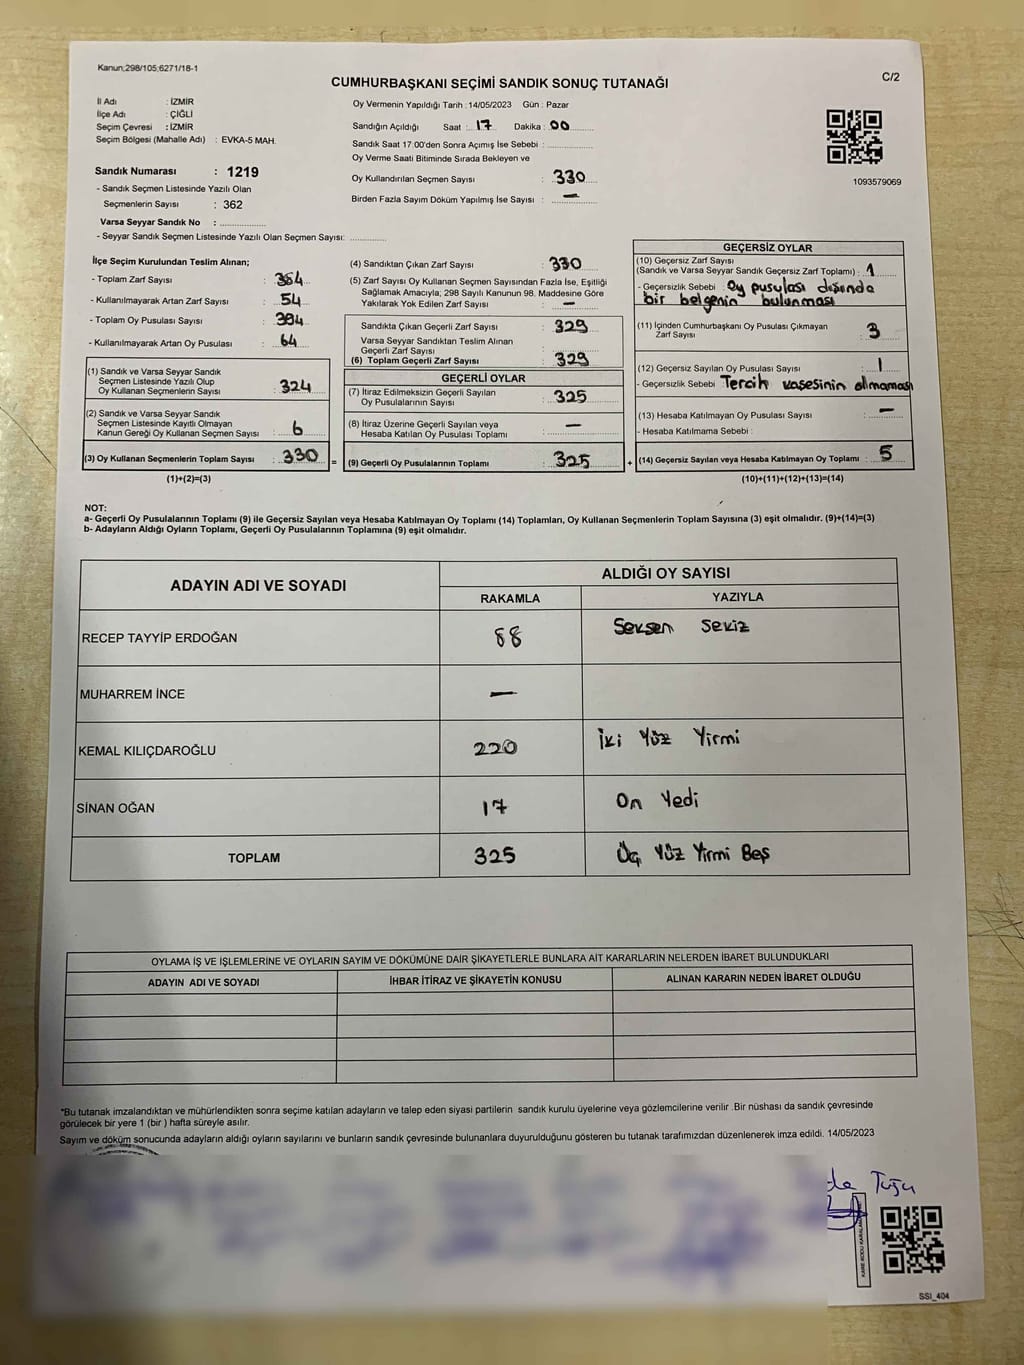 Kanun;298/105;6271/18-1
CUMHURBAŞKANI SEÇİMİ SANDIK SONUÇ TUTANAĞI
C/2
İl Adı : İZMİR
İlçe Adı : ÇİĞLİ
Seçim Çevresi : İZMİR
Seçim Bölgesi (Mahalle Adı) : EVKA-5 MAH.
Sandık Numarası : 1219
- Sandık Seçmen Listesinde Yazılı Olan
Seçmenlerin Sayısı : 362
Varsa Seyyar Sandık No : ....................
- Seyyar Sandık Seçmen Listesinde Yazılı Olan Seçmen Sayısı: ............
Oy Vermenin Yapıldığı Tarih : 14/05/2023 Gün : Pazar
Sandığın Açıldığı Saat : 17 Dakika : 00
Sandık Saat 17:00'den Sonra Açımış İse Sebebi : ..............
Oy Verme Saati Bitiminde Sırada Bekleyen ve
Oy Kullandırılan Seçmen Sayısı : 330
Birden Fazla Sayım Döküm Yapılmış İse Sayısı : —
1093579069
İlçe Seçim Kurulundan Teslim Alınan;
- Toplam Zarf Sayısı : 384
- Kullanılmayarak Artan Zarf Sayısı : 54
- Toplam Oy Pusulası Sayısı : 394
- Kullanılmayarak Artan Oy Pusulası : 64
(1) Sandık ve Varsa Seyyar Sandık
Seçmen Listesinde Yazılı Olup
Oy Kullanan Seçmenlerin Sayısı : 324
(2) Sandık ve Varsa Seyyar Sandık
Seçmen Listesinde Kayıtlı Olmayan
Kanun Gereği Oy Kullanan Seçmen Sayısı : 6
(3) Oy Kullanan Seçmenlerin Toplam Sayısı : 330 =
(1)+(2)=(3)
(4) Sandıktan Çıkan Zarf Sayısı : 330
(5) Zarf Sayısı Oy Kullanan Seçmen Sayısından Fazla İse, Eşitliği
Sağlamak Amacıyla; 298 Sayılı Kanunun 98. Maddesine Göre
Yakılarak Yok Edilen Zarf Sayısı : —
Sandıkta Çıkan Geçerli Zarf Sayısı : 329
Varsa Seyyar Sandıktan Teslim Alınan
Geçerli Zarf Sayısı :
(6) Toplam Geçerli Zarf Sayısı : 329
GEÇERLİ OYLAR
(7) İtiraz Edilmeksizin Geçerli Sayılan
Oy Pusulalarının Sayısı : 325
(8) İtiraz Üzerine Geçerli Sayılan veya
Hesaba Katılan Oy Pusulası Toplamı : —
(9) Geçerli Oy Pusulalarının Toplamı : 325 +
GEÇERSİZ OYLAR
(10) Geçersiz Zarf Sayısı
(Sandık ve Varsa Seyyar Sandık Geçersiz Zarf Toplamı) : 1
- Geçersizlik Sebebi : Oy pusulası dışında
bir belgenin bulunması
(11) İçinden Cumhurbaşkanı Oy Pusulası Çıkmayan
Zarf Sayısı : 3
(12) Geçersiz Sayılan Oy Pusulası Sayısı : 1
- Geçersizlik Sebebi : Tercih kaşesinin olmaması
(13) Hesaba Katılmayan Oy Pusulası Sayısı : —
- Hesaba Katılmama Sebebi :
(14) Geçersiz Sayılan veya Hesaba Katılmayan Oy Toplamı : 5
(10)+(11)+(12)+(13)=(14)
NOT:
a- Geçerli Oy Pusulalarının Toplamı (9) ile Geçersiz Sayılan veya Hesaba Katılmayan Oy Toplamı (14) Toplamları, Oy Kullanan Seçmenlerin Toplam Sayısına (3) eşit olmalıdır. (9)+(14)=(3)
b- Adayların Aldığı Oyların Toplamı, Geçerli Oy Pusulalarının Toplamına (9) eşit olmalıdır.
ADAYIN ADI VE SOYADI
ALDIĞI OY SAYISI
RAKAMLA YAZIYLA
RECEP TAYYİP ERDOĞAN 88 Seksen Sekiz
MUHARREM İNCE —
KEMAL KILIÇDAROĞLU 220 İki Yüz Yirmi
SİNAN OĞAN 17 On Yedi
TOPLAM 325 Üç Yüz Yirmi Beş
OYLAMA İŞ VE İŞLEMLERİNE VE OYLARIN SAYIM VE DÖKÜMÜNE DAİR ŞİKAYETLERLE BUNLARA AİT KARARLARIN NELERDEN İBARET BULUNDUKLARI
ADAYIN ADI VE SOYADI İHBAR İTİRAZ VE ŞİKAYETİN KONUSU ALINAN KARARIN NEDEN İBARET OLDUĞU
*Bu tutanak imzalandıktan ve mühürlendikten sonra seçime katılan adayların ve talep eden siyasi partilerin sandık kurulu üyelerine veya gözlemcilerine verilir .Bir nüshası da sandık çevresinde
görülecek bir yere 1 (bir ) hafta süreyle asılır.
Sayım ve döküm sonucunda adayların aldığı oyların sayılarını ve bunların sandık çevresinde bulunanlara duyurulduğunu gösteren bu tutanak tarafımızdan düzenlenerek imza edildi. 14/05/2023
SSİ_404